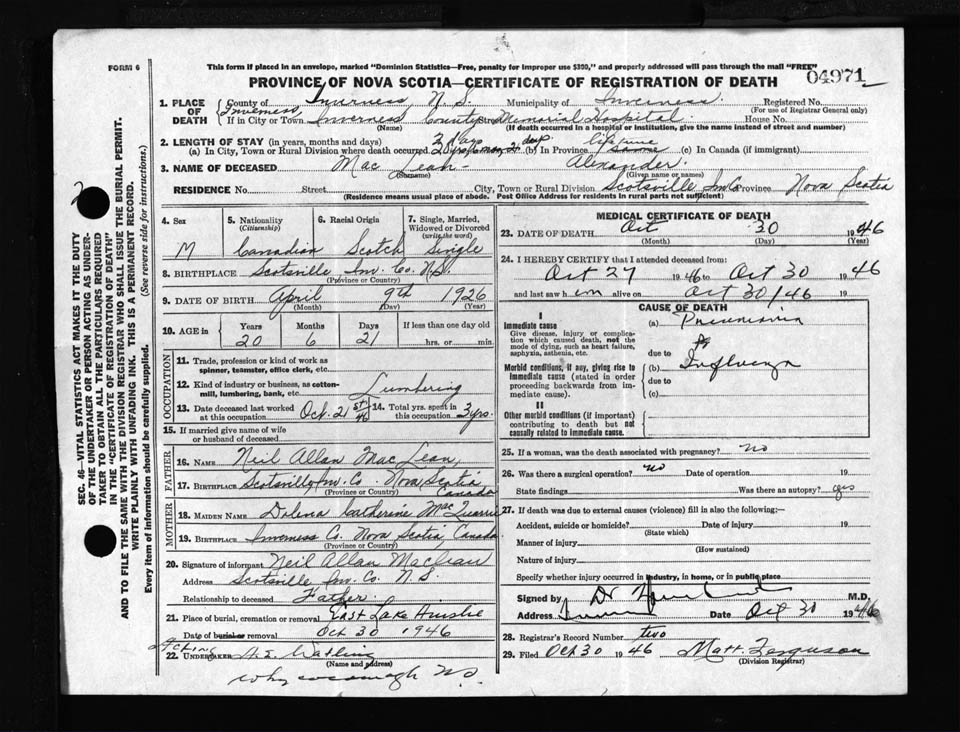 FORM 6
This form if placed in an envelope, marked "Dominion Statistics—Free, penalty for improper use $300," and properly addressed will pass through the mail "FREE"
PROVINCE OF NOVA SCOTIA—CERTIFICATE OF REGISTRATION OF DEATH
04971
1. PLACE OF DEATH
County of Inverness, N. S. Municipality of Inverness. Registered No.
(For use of Registrar General only)
If in City or Town Inverness, Inverness County Street Memorial Hospital House No.
(Name) (If death occurred in a hospital or institution, give the name instead of street and number)
2. LENGTH OF STAY (in years, months and days)
(a) In City, Town or Rural Division where death occurred 3 days (b) In Province lifetime (c) In Canada (if immigrant)
3. NAME OF DECEASED Mac Lean Alexander.
(Surname) (Given name or names)
RESIDENCE No. Street City, Town or Rural Division Scotsville Inv. Co Province Nova Scotia
(Residence means usual place of abode. Post Office Address for residents in rural parts not sufficient)
4. Sex M
5. Nationality (Citizenship) Canadian
6. Racial Origin Scotch
7. Single, Married, Widowed or Divorced (write the word) Single
8. BIRTHPLACE Scotsville Inv. Co. N.S.
(Province or Country)
9. DATE OF BIRTH April 9th 1926
(Month) (Day) (Year)
10. AGE in Years Months Days If less than one day old
20 6 21 hrs. or min.
OCCUPATION
11. Trade, profession or kind of work as spinner, teamster, office clerk, etc.
12. Kind of industry or business, as cotton-mill, lumbering, bank, etc. Lumbering
13. Date deceased last worked at this occupation Oct. 21st 46 14. Total yrs. spent in this occupation 3 yrs.
15. If married give name of wife or husband of deceased
FATHER
16. NAME Neil Allan Mac Lean,
17. BIRTHPLACE Scotsville, Inv. Co. Nova Scotia Canada
(Province or Country)
MOTHER
18. MAIDEN NAME Dolena Catherine Mac Quarrie
19. BIRTHPLACE Inverness Co. Nova Scotia, Canada.
(Province or Country)
20. Signature of informant Neil Allan Maclean
Address Scotsville Inv. Co. N. S.
Relationship to deceased Father.
21. Place of burial, cremation or removal East Lake Ainslie
Date of burial or removal Oct 30 1946
22. Acting UNDERTAKER
(Name and address)
Whycocomagh N.S.
MEDICAL CERTIFICATE OF DEATH
23. DATE OF DEATH Oct 30 1946
(Month) (Day) (Year)
24. I HEREBY CERTIFY that I attended deceased from:
Oct 27 1946 to Oct 30 1946
and last saw him alive on Oct 30/46 19
CAUSE OF DEATH
I
Immediate cause
Give disease, injury or complication which caused death, not the mode of dying, such as heart failure, asphyxia, asthenia, etc.
(a) Pneumonia
due to
Morbid conditions, if any, giving rise to immediate cause (stated in order proceeding backwards from immediate cause).
(b) Influenza
due to
(c)
II
Other morbid conditions (if important) contributing to death but not causally related to immediate cause.
25. If a woman, was the death associated with pregnancy? no
26. Was there a surgical operation? no Date of operation 19
State findings Was there an autopsy? yes
27. If death was due to external causes (violence) fill in also the following:—
Accident, suicide or homicide? Date of injury 19
(State which)
Manner of injury
(How sustained)
Nature of injury
Specify whether injury occurred in industry, in home, or in public place
Signed by Dr M.D.
Address Date Oct 30 1946
28. Registrar's Record Number two
29. Filed Oct 30 1946 Matt. Ferguson
(Division Registrar)
SEC. 46—VITAL STATISTICS ACT MAKES IT THE DUTY
OF THE UNDERTAKER OR PERSON ACTING AS UNDER-
TAKER TO OBTAIN ALL THE PARTICULARS REQUIRED
IN THE "CERTIFICATE OF REGISTRATION OF DEATH"
AND TO FILE THE SAME WITH THE DIVISION REGISTRAR WHO SHALL ISSUE THE BURIAL PERMIT.
WRITE PLAINLY WITH UNFADING INK. THIS IS A PERMANENT RECORD.
Every item of information should be carefully supplied. (See reverse side for instructions.)
2